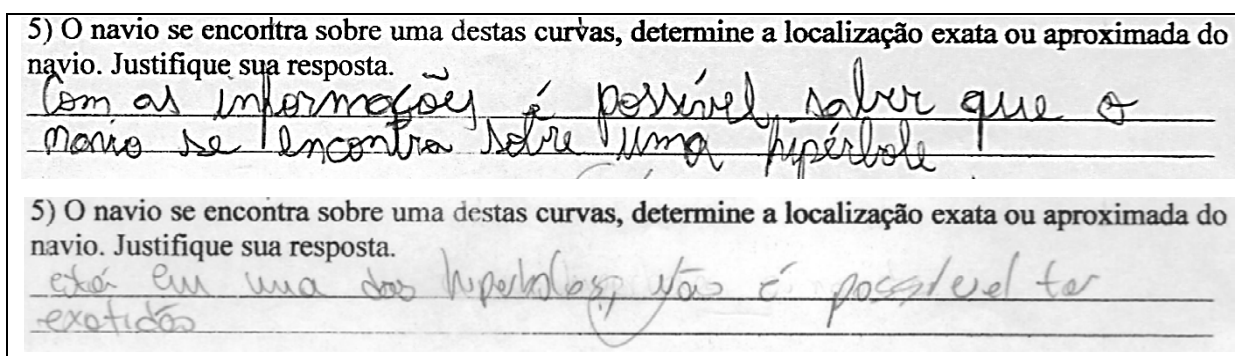 5) O navio se encontra sobre uma destas curvas, determine a localização exata ou aproximada do
navio. Justifique sua resposta.
Com as informações é possível saber que o
navio se encontra sobre uma hipérbole
5) O navio se encontra sobre uma destas curvas, determine a localização exata ou aproximada do
navio. Justifique sua resposta.
está em uma das hiperboles, não é possivel ter
exatidão